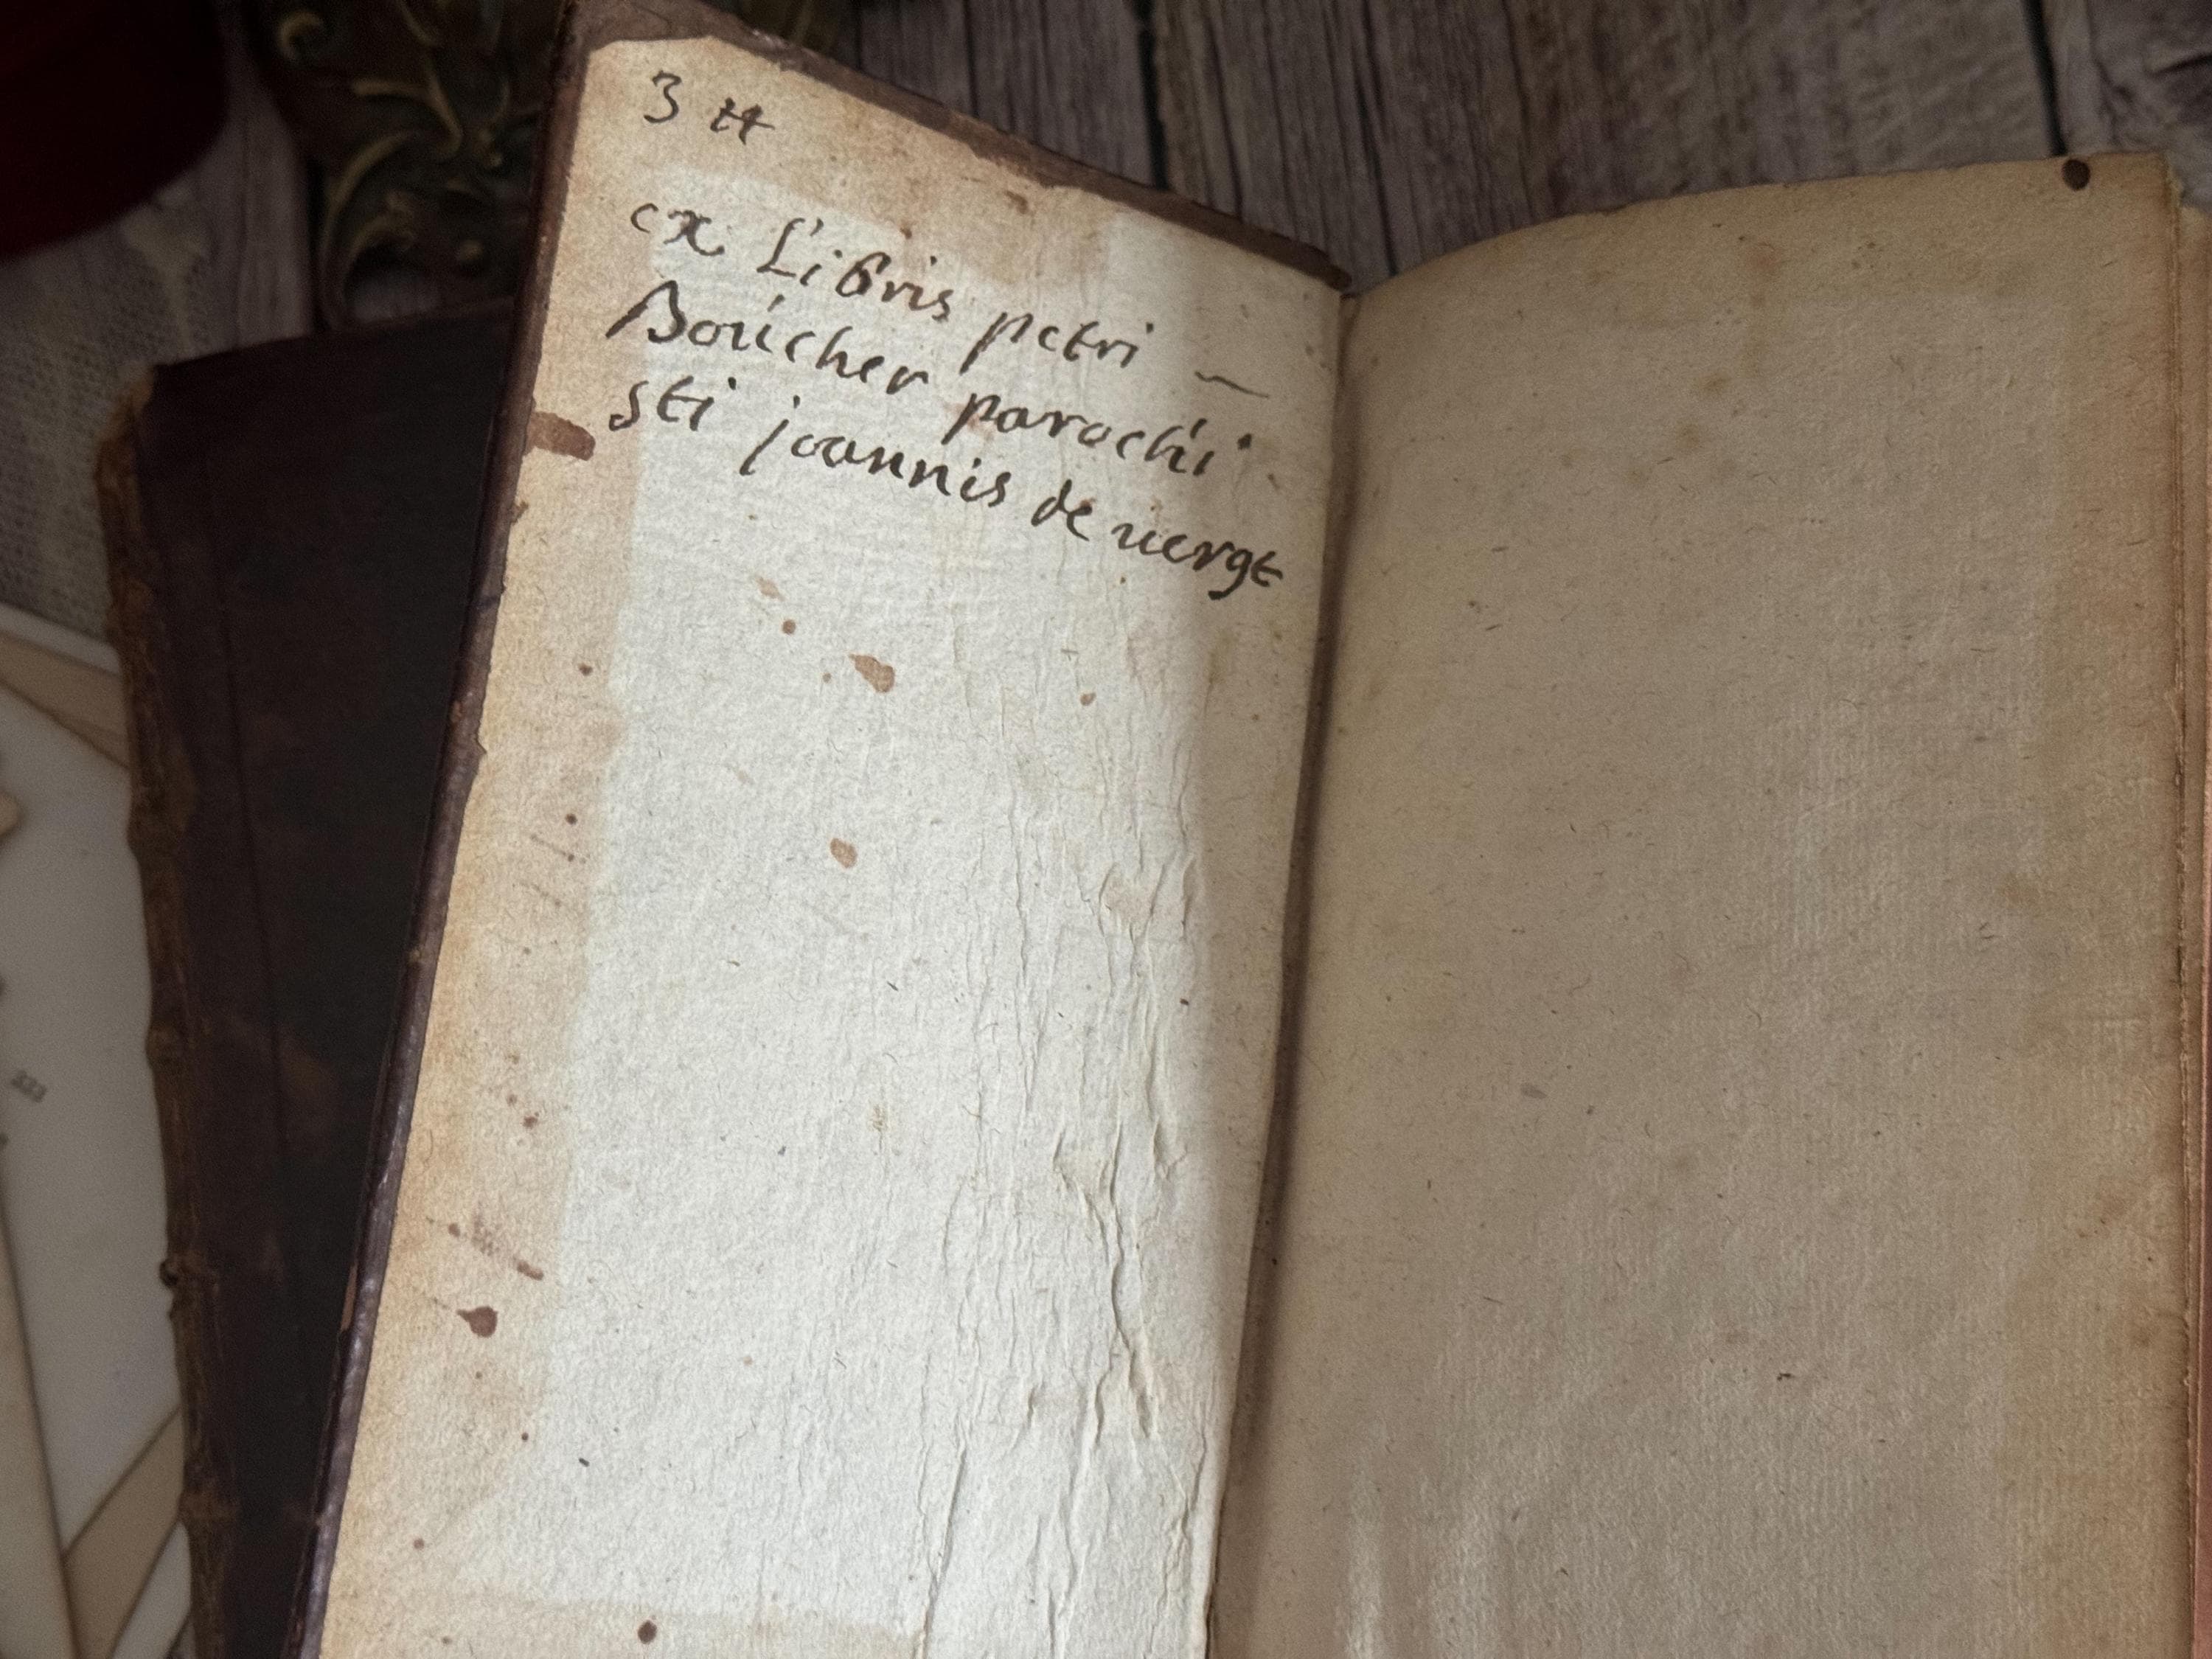 3 ₶
ex Libris petri —
Boücher parochi
sti joannis de uergt